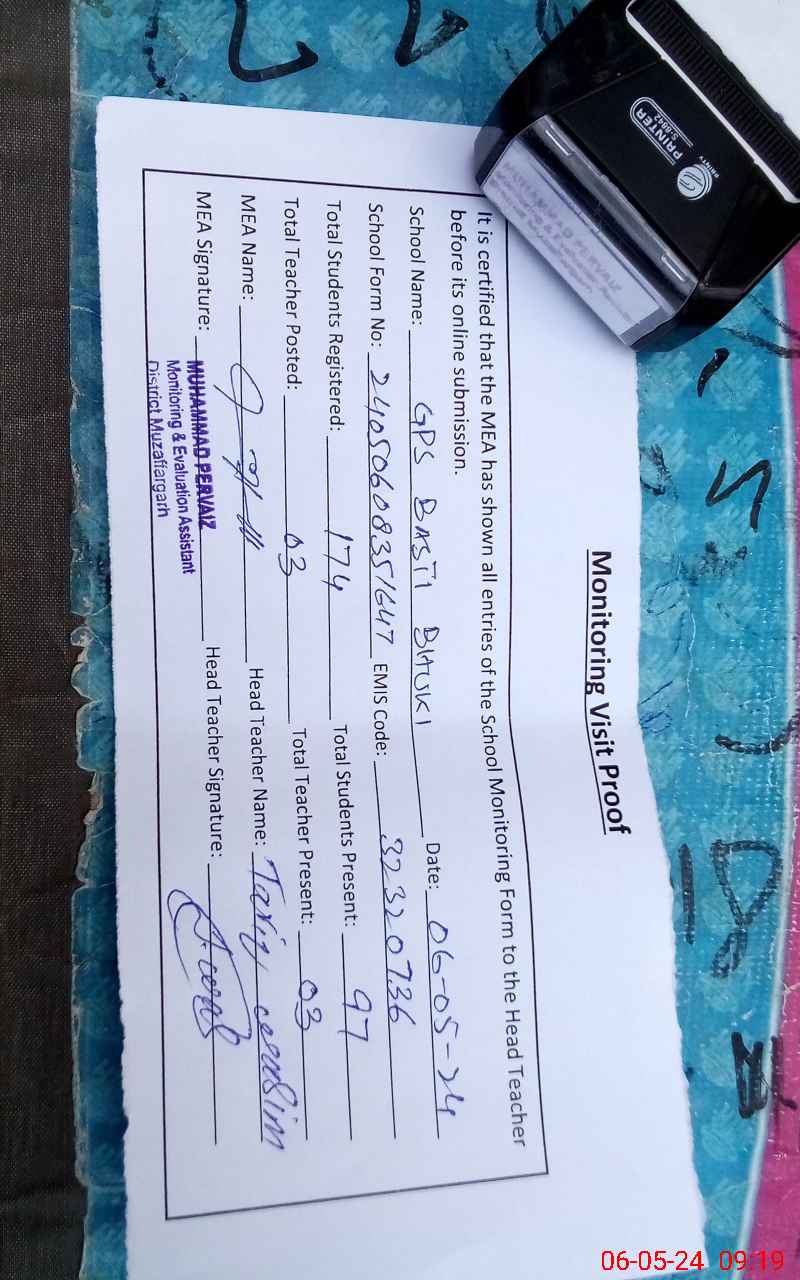 Monitoring Visit Proof
It is certified that the MEA has shown all entries of the School Monitoring Form to the Head Teacher
before its online submission.
School Name: GPS BASTI BHUKI Date: 06-05-24
School Form No: 24050608351647 EMIS Code: 32320736
Total Students Registered: 174 Total Students Present: 97
Total Teacher Posted: 03 Total Teacher Present: 03
MEA Name: Head Teacher Name: Tariq
MEA Signature: Head Teacher Signature:
MUHAMMAD PERVAIZ
Monitoring & Evaluation Assistant
District Muzaffargarh
PRINTER
S-6842
06-05-24 09:19